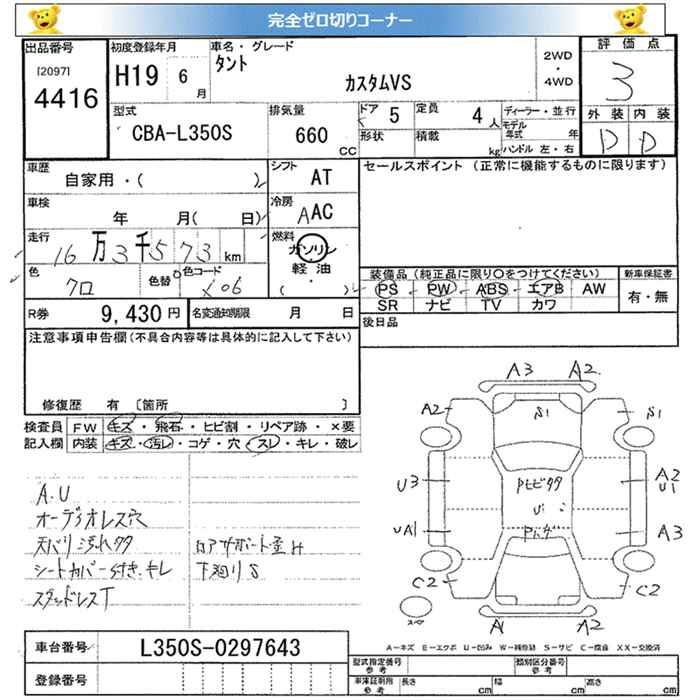 完全ゼロ切りコーナー
出品番号 初度登録年月 車名・グレード 2WD ・ 4WD 評価点
[2097] 4416 H19 6月 タント カスタムVS 3
型式 排気量 ドア 5 定員 4人 ディーラー・並行 外装 内装
CBA-L350S 660 CC 形状 積載 kg モデル年式 年 ハンドル 左・右 D D
車歴 シフト AT セールスポイント (正常に機能するものに限ります)
自家用・( )
車検 冷房 AAC
年 月( 日)
走行 16万3千573km 燃料 ガソリン 軽油 ( )
色 クロ 色替 色コード X06
装備品(純正品に限り○をつけてください) 新車保証書
PS PW ABS エアB AW 有・無
SR ナビ TV カワ
R券 9,430円 名変通知期限 月 日 後日品
注意事項申告欄(不具合内容等は具体的に記入して下さい)
修復歴 有 [箇所 ]
検査員 FW キズ・飛石・ヒビ割・リペア跡・×要
記入欄 内装 キズ・汚レ・コゲ・穴・スレ・キレ・破レ
A.U
オーディオレス穴
天バリ汚れ夕
シートカバー付き.キレ
スタッドレスT
ロアサポート歪H
下廻りS
A3 A2
A2 S1 S1
U3 Pヒビタタ A2 U1
U1
UA1 Pハゲ A3
C2 C2
スペア A1 A2
A-キズ E-エクボ U-凹み W-補修跡 S-サビ C-腐食 XX-交換済
車台番号 L350S-0297643
登録番号
型式指定番号 参考 類別区分番号 参考
車庫証明用 参考 長さ cm 幅 cm 高さ cm